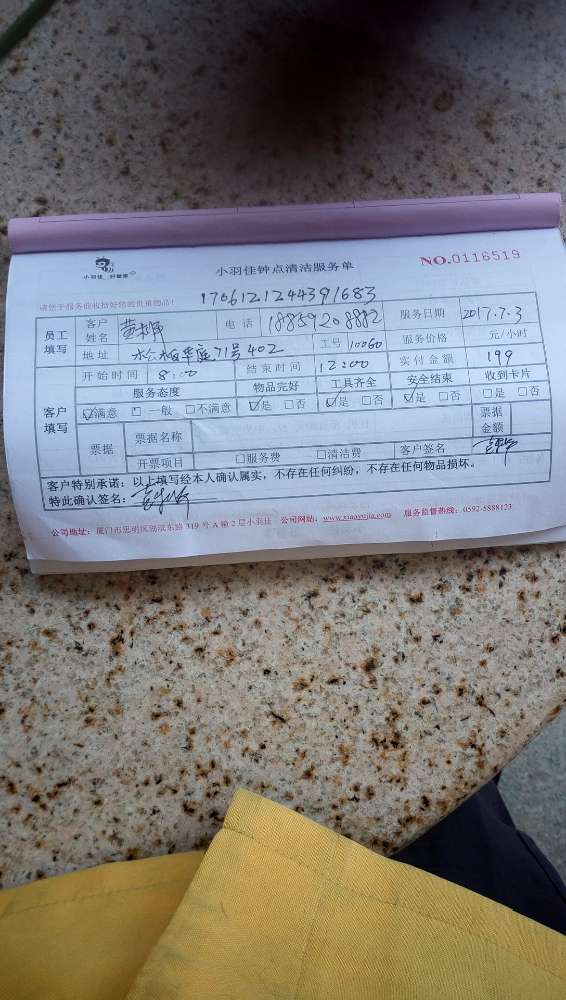 小羽佳 好管家
小羽佳钟点清洁服务单
NO.0116519
请您于服务前收拾好您的贵重物品！
1706121244391683
员工填写 客户姓名 电话 18859208882 服务日期 2017.7.3
地址 71号402 工号 10060 服务价格 元/小时
开始时间 8:00 结束时间 12:00 实付金额 199
客户填写 服务态度 物品完好 工具齐全 安全结束 收到卡片
☑满意 □一般 □不满意 ☑是 □否 ☑是 □否 ☑是 □否 □是 □否
票据 票据名称 票据金额
开票项目 □服务费 □清洁费 客户签名
客户特别承诺：以上填写经本人确认属实，不存在任何纠纷，不存在任何物品损坏。
特此确认签名：
公司地址：厦门市思明区莲前东路319号A幢2层小羽佳 公司网站：www.xiaoyujia.com 服务监督热线：0592-5888123